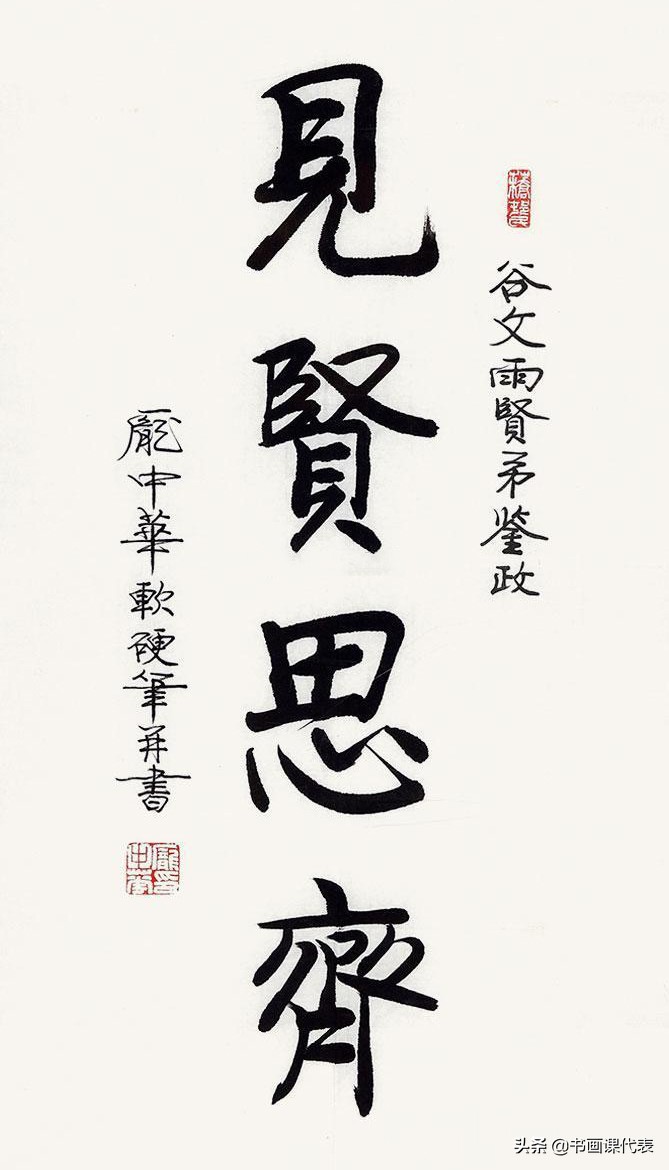 谷文雨賢弟鋻政
見賢思齊
龐中華軟硬筆并書
龐印中華
头条 @书画课代表